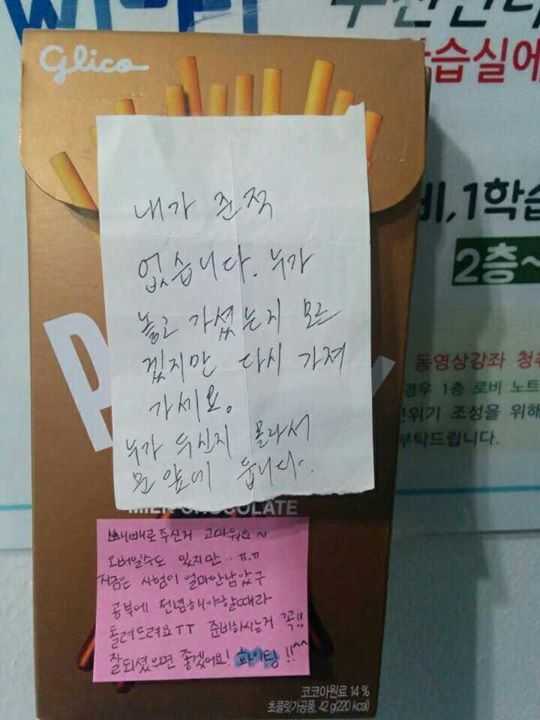 Glico
습실에
내가 준적
없습니다. 누가
놓고 가셨는지 모르
겠지만 다시 가져
가세요.
누가 두신지 몰라서
문 앞에 둡니다.
비,1학습
2층~
동영상강좌 청취
경우 1층 로비 노트
분위기 조성을 위해
부탁드립니다.
MILK CHOCOLATE
빼빼로 주신거 고마워요~
오바일수도 있지만..ㅠ.ㅠ
지금은 시험이 얼마안남았구
공부에 전념해야할때라
돌려드려요 TT 준비하시는거 꼭!!
잘되셨으면 좋겠어요! 화이팅!!^^
코코아원료 14 %
초콜릿가공품, 42 g(220 kcal)